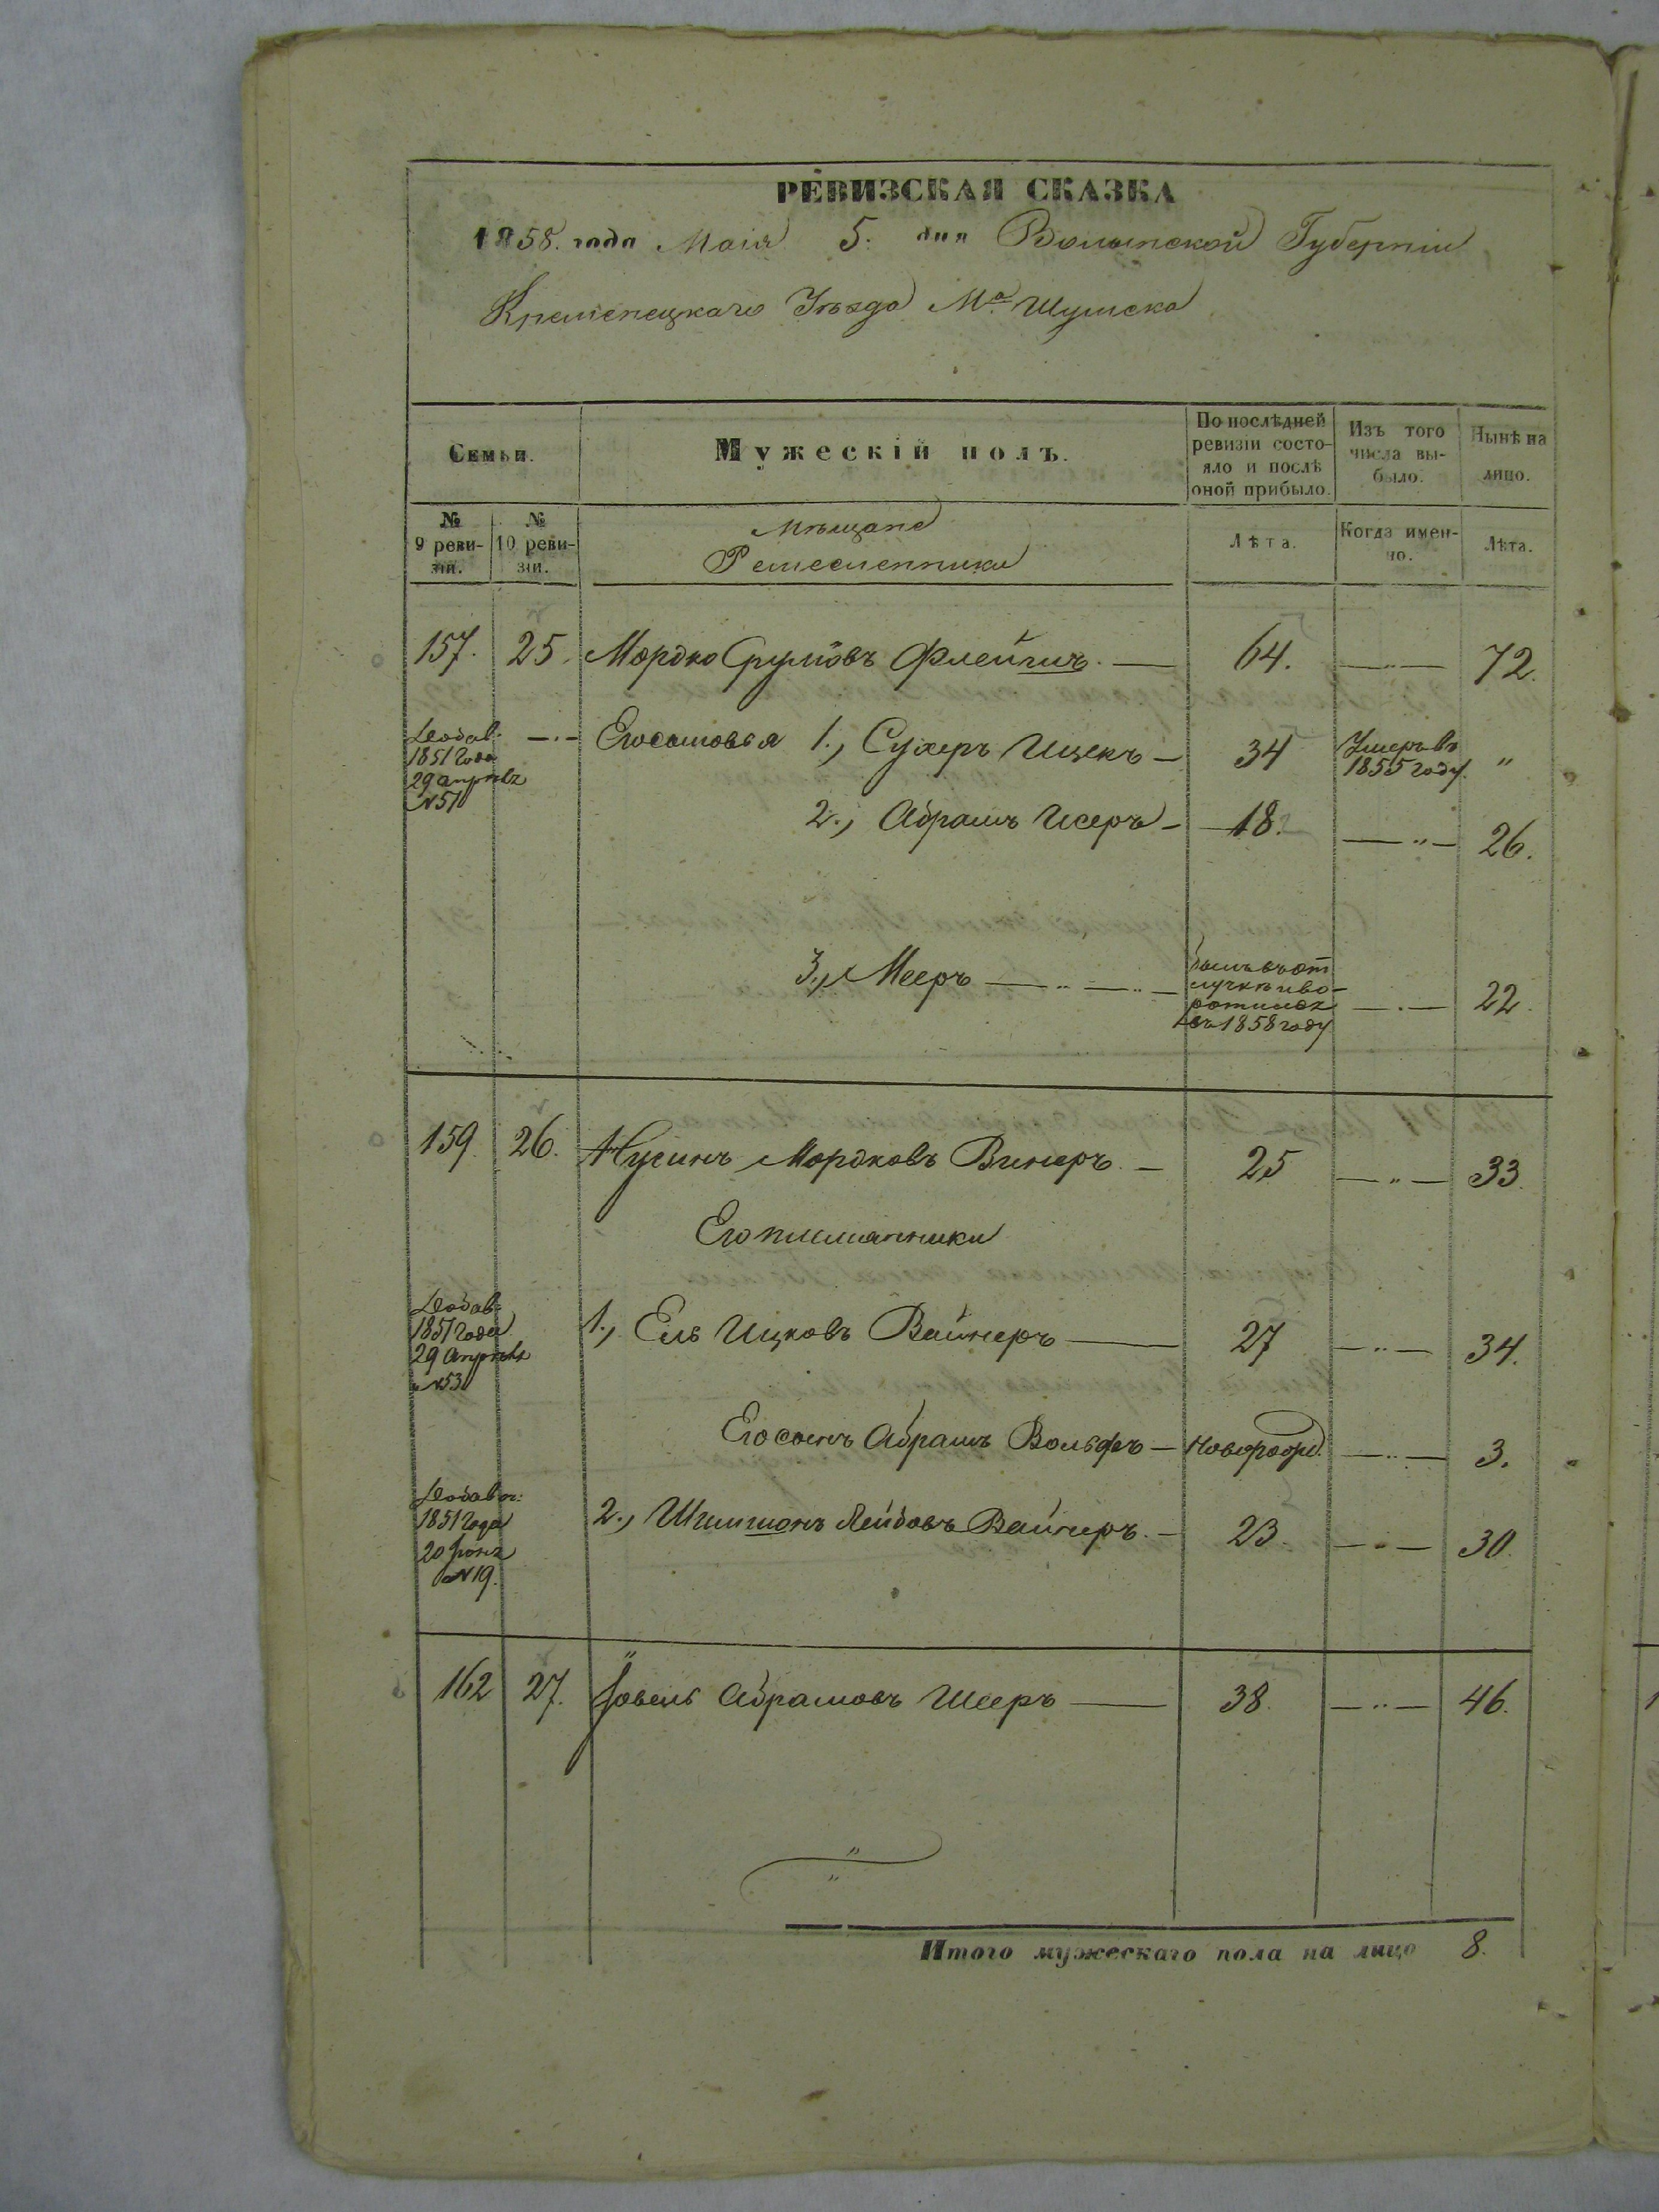 РЕВИЗСКАЯ СКАЗКА
1858. года Маія 5. дня Волынской Губерніи
Кременецкаго Уѣзда Мᵃ. Шумска
Семьи.
Мужескій полъ.
По послѣдней ревизіи состо-
яло и послѣ оной прибыло.
Изъ того числа вы-
было.
Нынѣ на лицо.
№ 9 реви-
зіи.
№ 10 реви-
зіи.
Мѣщане
Ремесленники
Лѣта.
Когда имен-
но.
Лѣта.
157. 25. Мордко Срулiовъ 64. —"— 72.
Добав: 1851 Года 29 апрѣля №51
—"— Его сыновья 1., Сухеръ Ицекъ — 34 Умеръ въ 1855 году. "
2., Абрамъ Исеръ — 18. —"— 26.
3., Мееръ —"—"— былъ въ от
лучкѣ и во-
ротился
въ 1858 году —"— 22.
159. 26. Нусинъ Мордковъ Винеръ. — 25 —"— 33.
Его племянники
Добав: 1851 Года 29 Апрѣля №53
1., Ель Ицковъ Вайнеръ — 27 —"— 34.
Его сынъ Абрамъ Вольфъ — Новорожд. —"— 3.
Добавоч: 1851 Года 20 Іюня №19.
2., Шимшонъ Лейбовъ Вайнеръ. — 23. —"— 30.
162 27. Іовель Абрамовъ Шееръ — 38. —"— 46.
Итого мужескаго пола на лицо 8.